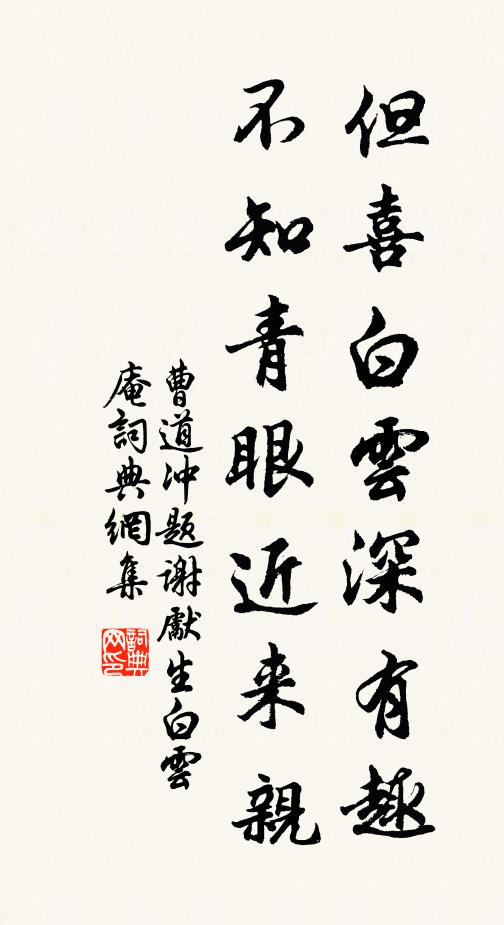 但喜白雲深有趣
不知青眼近来親
曹道冲题谢獻生白雲
庵詞典網集
詞典
网印